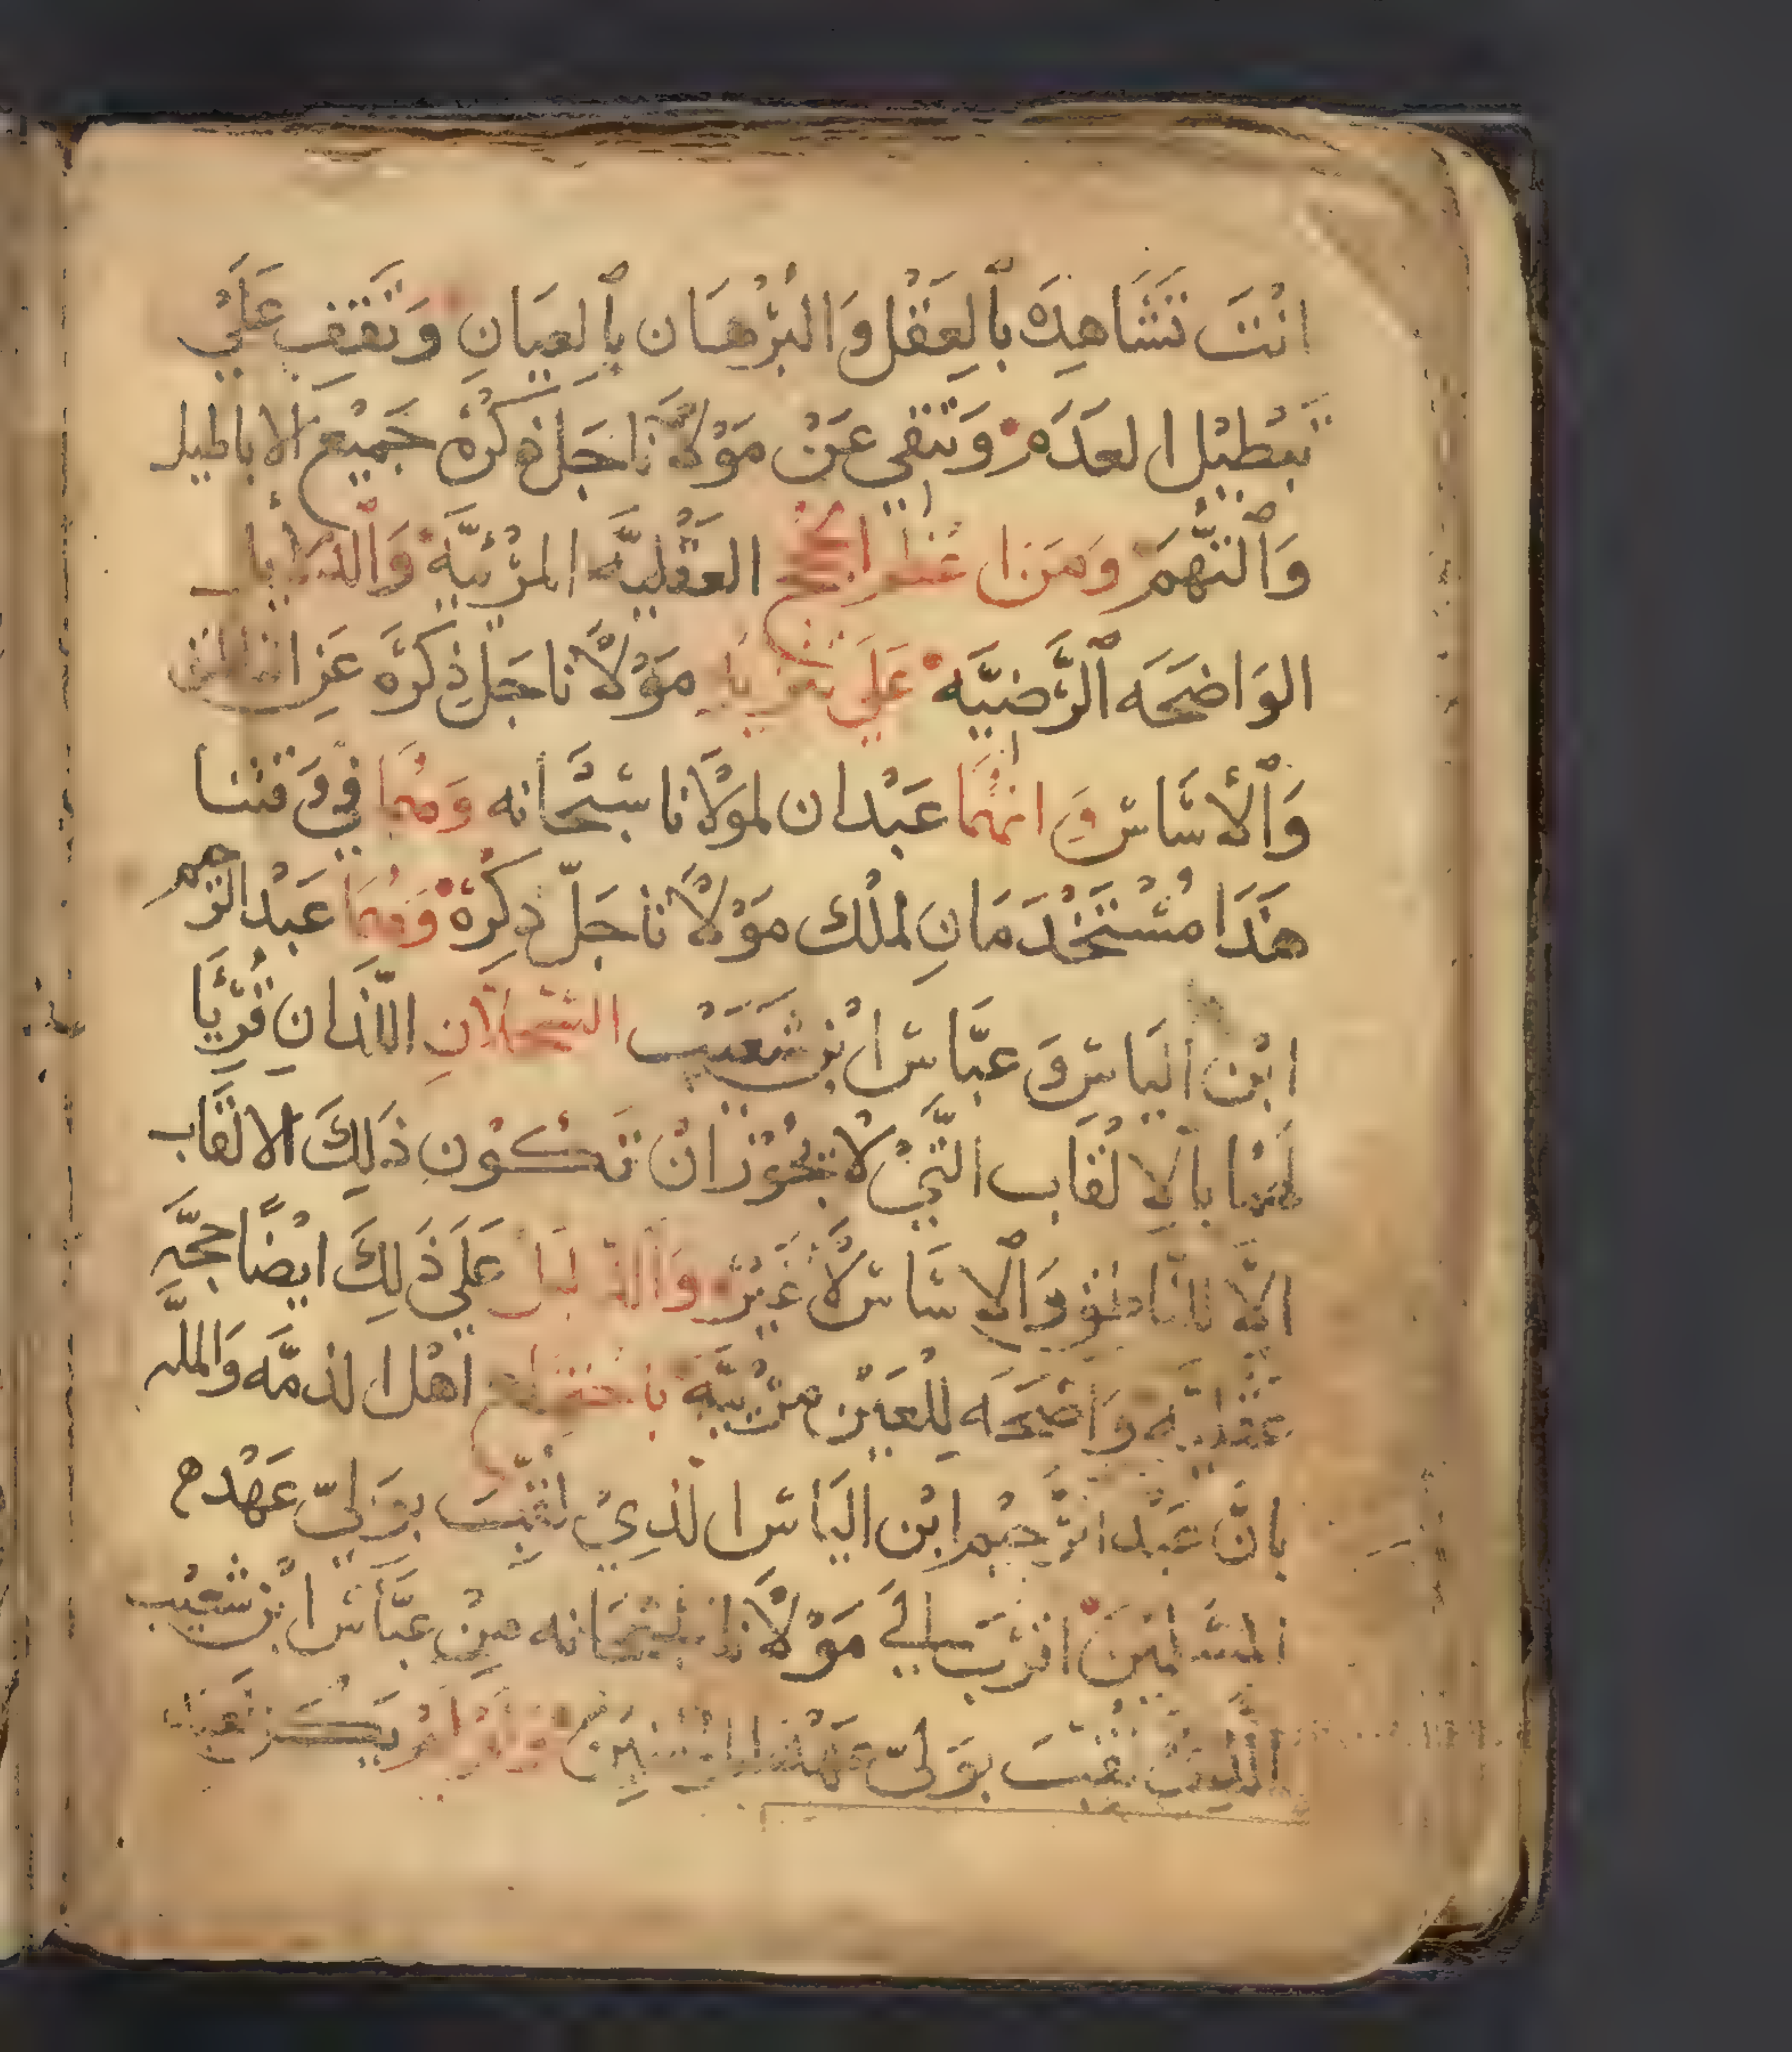 انْتَ تَشَاهِدَه بِٱلعَقْل وَالبُرْهَان بِٱلعيَانِ وَتَقِفِ عَلَيْ
تبْطيْل العَدَم وَتنفي عَنْ مَوْلَانَا جَلّ ذكرُهُ جَميْع الاباطيل
وَٱلتهَم وَمن اعظم الحجج العقليَّه المرْئيَّه وَالد
الوَاضحَه ٱلرَّضيَّه عَلَي مَوْلَانا جَلّ ذِكرَه عَنِ الناطق
وَٱلأسَاس وَانهُمَا عَبْدان لمولانا سبْحَانه وَهُمَا في وَقتنا
هَذَا مُسْتَخْدَمَانِ لمُلْك مَوْلَانا جَلّ ذِكرهُ وَهُمَا عَبْد الرحيم
ابْن اليَاس وَ عبَّاس ابْن شعَيْب اللّذانِ قُرِّيَا
لهُمَا بالالقَاب التَّيْ لَا يجُوْز انْ تَكُوْن ذَلِكَ الالقَاب
الَّا للنَّاطق وَٱلاسَاس لَا غَيْر وَالدليل عَلَي ذَلِكَ ايْضًا حجَّه
عَقْليَّه وَاضحَه لِلعَيْن مرْئيَّه اهْل الذمَّه وَالملَّه
بانَّ عَبْد الرَّحيْم ابْن اليَاس الذِيْ لُقِّبَ بوَليّ عَهْد
المسْلمِيْنَ اقْرَب اليَ مَوْلَانا سُبْحَانه مِنْ عبَّاس ابْن شعَيْب
الَّذِيْ لُقِّبَ بوَليّ عَهْد المؤمنيْن يَكُنْ